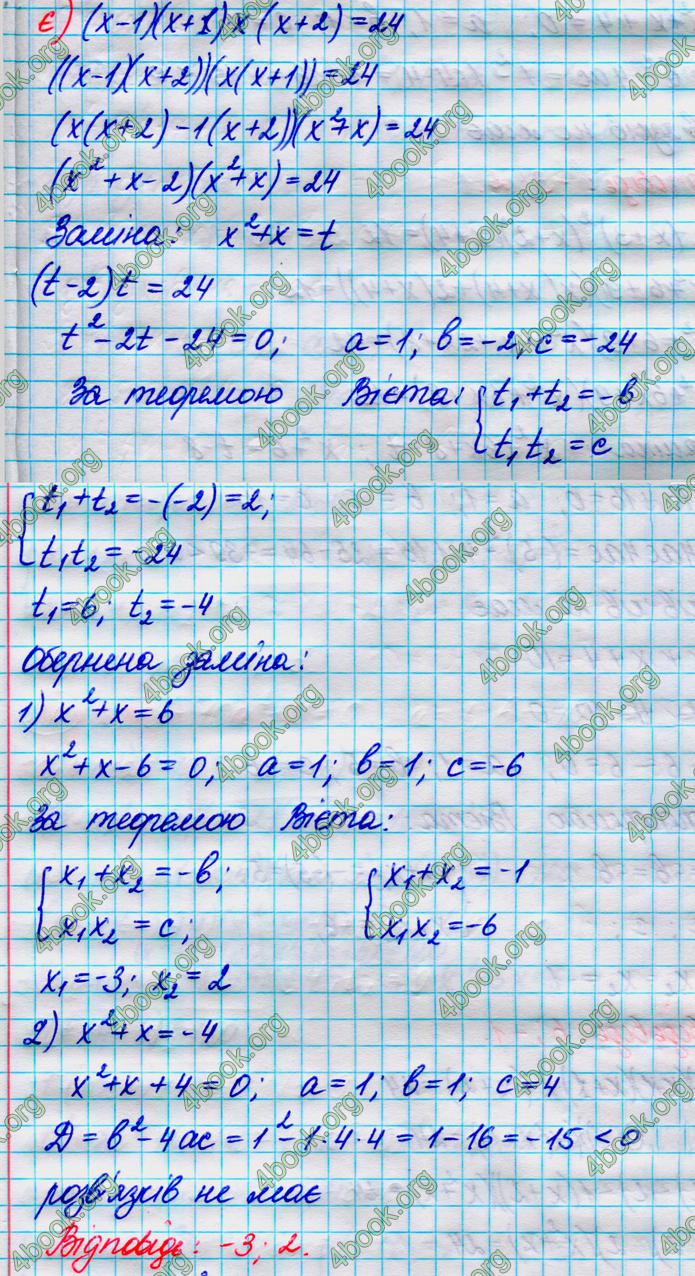 є) (x-1)(x+1)x(x+2)=24
((x-1)(x+2))(x(x+1))=24
(x(x+2)-1(x+2))(x²+x)=24
(x²+x-2)(x²+x)=24
Заміна: x²+x=t
(t-2)t=24
t²-2t-24=0; a=1; b=-2; c=-24
За теоремою Вієта: { t₁+t₂=-b
t₁t₂=c
{ t₁+t₂=-(-2)=2;
t₁t₂=-24
t₁=6; t₂=-4
Обернена заміна:
1) x²+x=6
x²+x-6=0; a=1; b=1; c=-6
За теоремою Вієта:
{ x₁+x₂=-b; { x₁+x₂=-1
x₁x₂=c; x₁x₂=-6
x₁=-3; x₂=2
2) x²+x=-4
x²+x+4=0; a=1; b=1; c=4
Д=b²-4ac=1²-1·4·4=1-16=-15<0
розв'язків не має
Відповідь: -3; 2.
4book.org